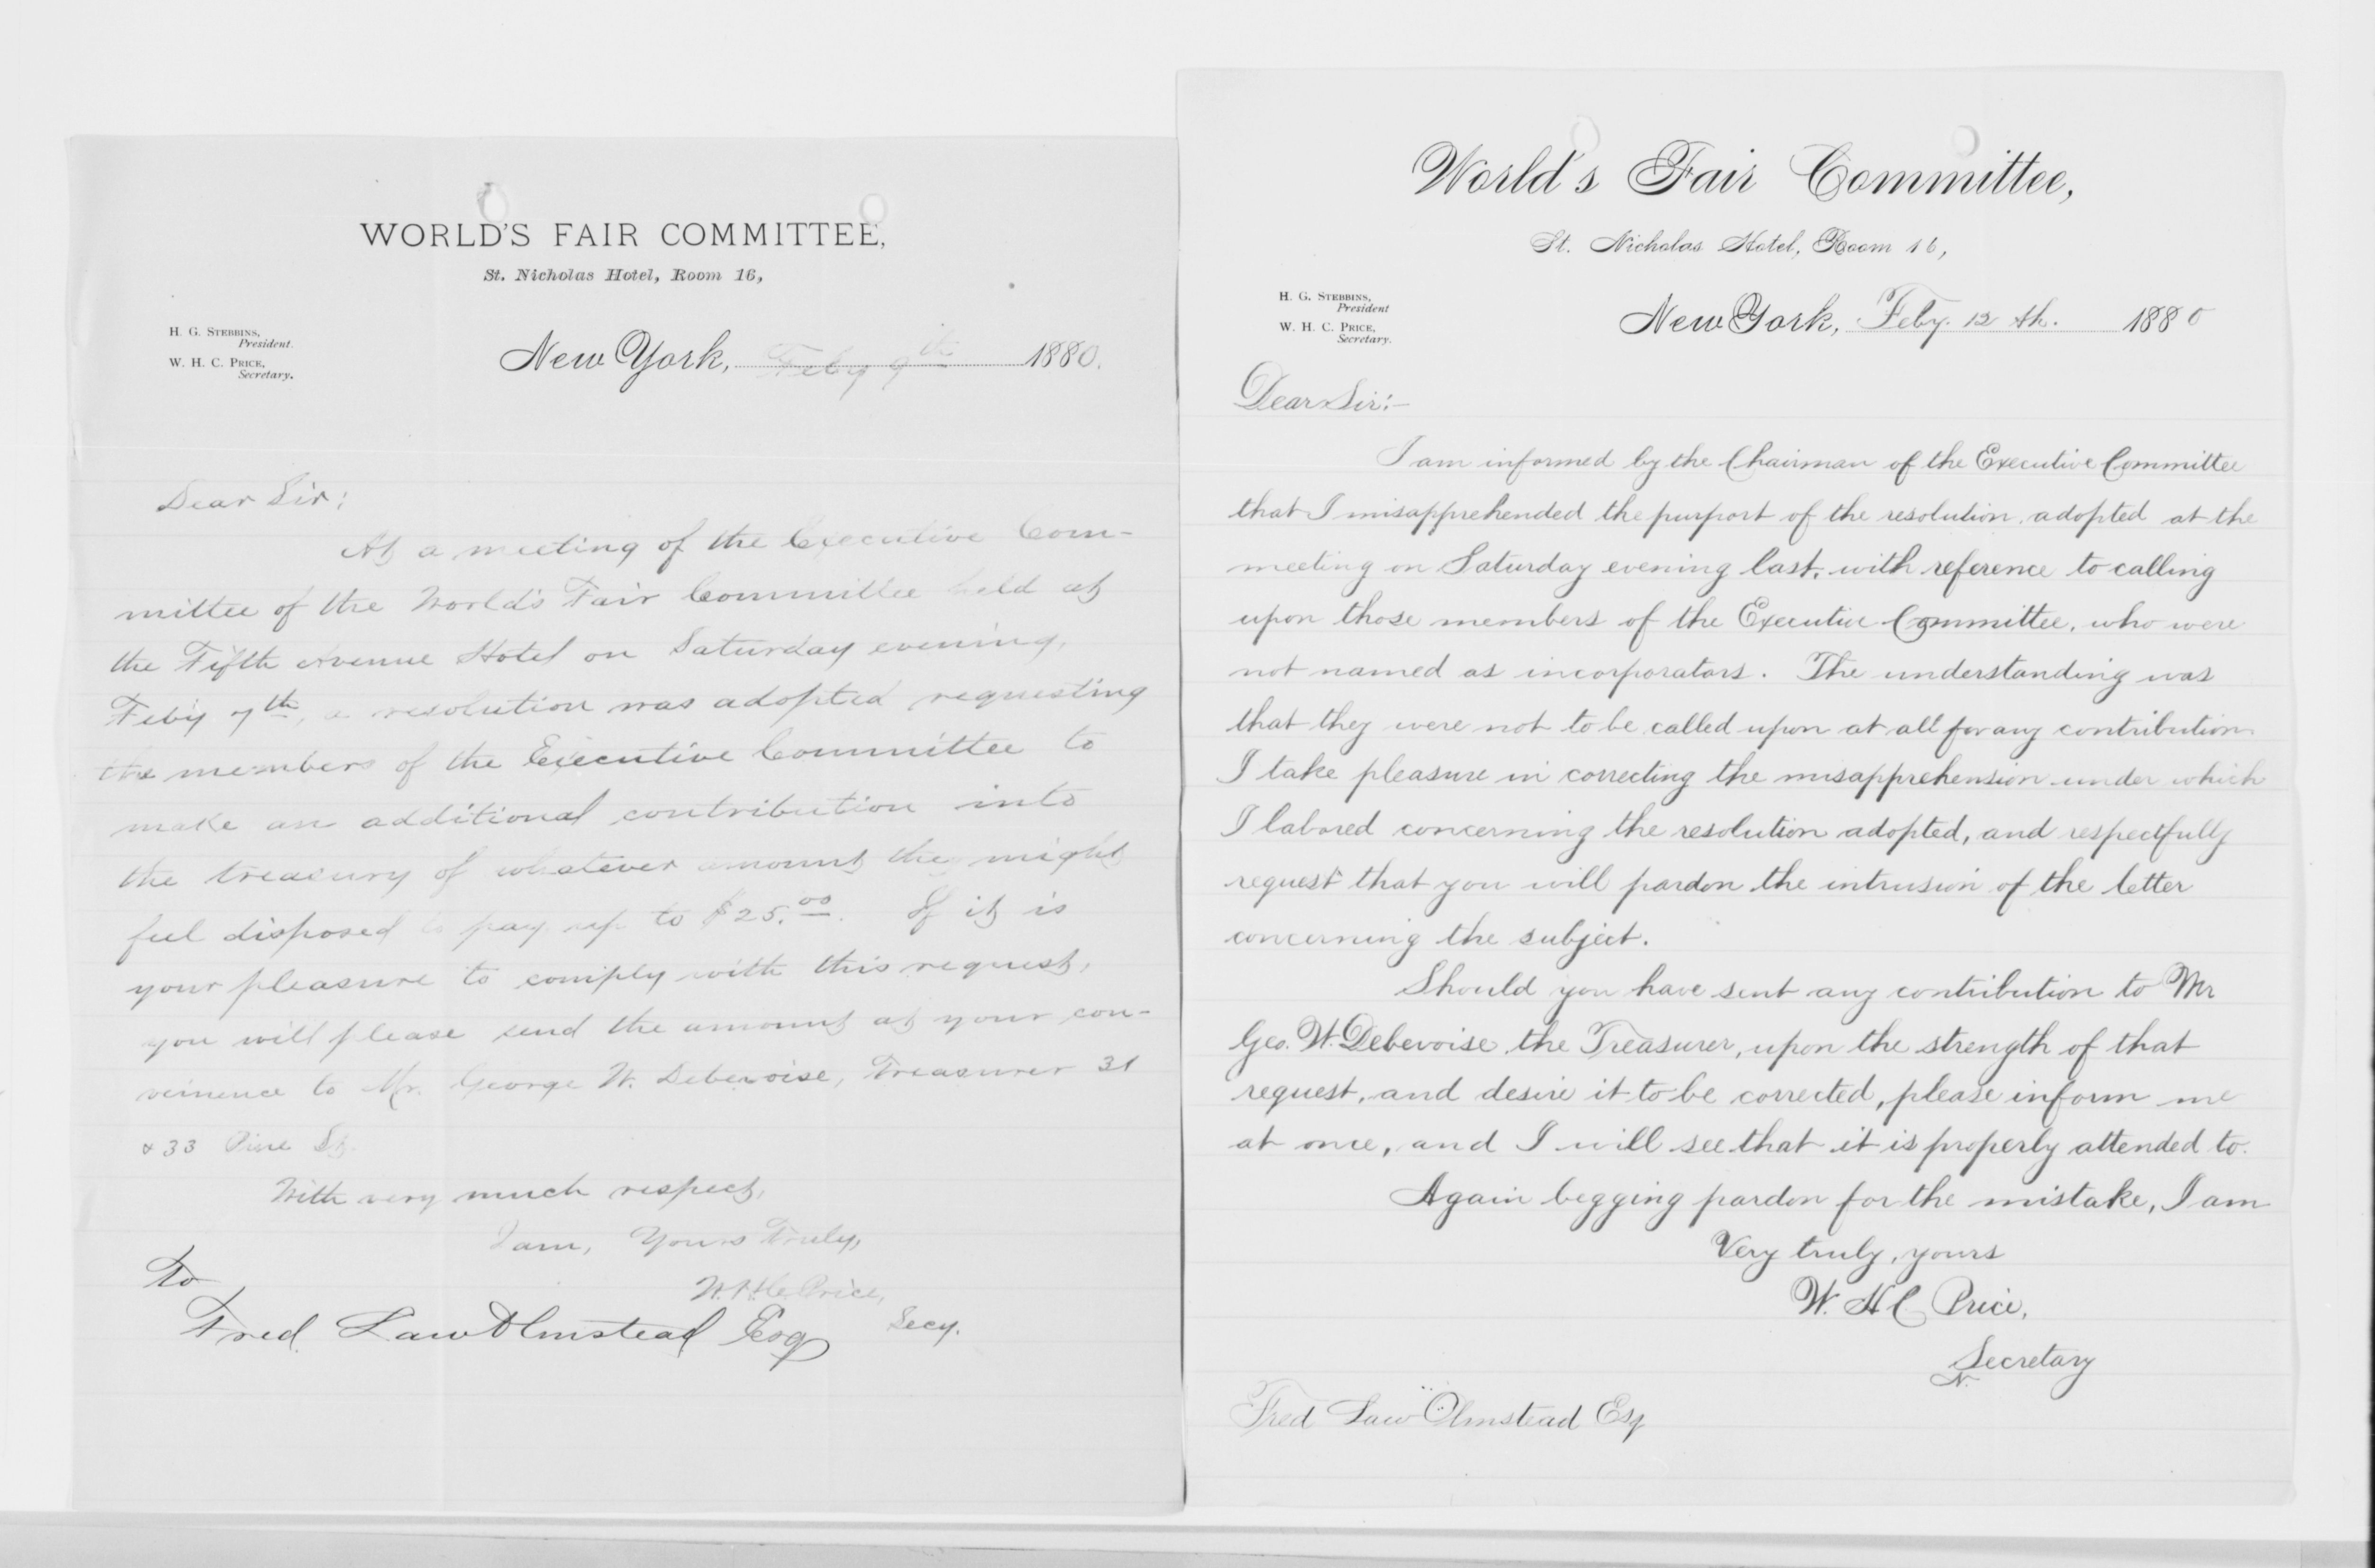 WORLD'S FAIR COMMITTEE,
St. Nicholas Hotel, Room 16,
H. G. STEBBINS,
President.
W. H. C. PRICE,
Secretary.
New York, Feby 9th 1880.
Dear Sir:
At a meeting of the Executive Com-
mittee of the World's Fair Committee held at
the Fifth Avenue Hotel on Saturday evening,
Feby 7th, a resolution was adopted requesting
the members of the Executive Committee to
make an additional contribution into
the treasury of whatever amount the might
feel disposed to pay up to $25.00. If it is
your pleasure to comply with this request,
you will please send the amount at your con-
veinence to Mr. George W. Debevoise, Treasurer 31
& 33 Pine St.
With very much respect,
I am, Yours Truly,
W. H. C. Price,
Secy.
To
Fred. Law Olmstead Esq
World's Fair Committee,
St. Nicholas Hotel, Room 16,
H. G. STEBBINS,
President
W. H. C. PRICE,
Secretary.
New York, Feby. 12 th. 1880
Dear Sir:—
I am informed by the Chairman of the Executive Committee
that I misapprehended the purport of the resolution adopted at the
meeting on Saturday evening last, with reference to calling
upon those members of the Executive Committee, who were
not named as incorporators. The understanding was
that they were not to be called upon at all for any contribution
I take pleasure in correcting the misapprehension under which
I labored concerning the resolution adopted, and respectfully
request that you will pardon the intrusion of the letter
concerning the subject.
Should you have sent any contribution to Mr
Geo. W. Debevoise the Treasurer, upon the strength of that
request, and desire it to be corrected, please inform me
at once, and I will see that it is properly attended to.
Again begging pardon for the mistake, I am
Very truly, yours
W. H C Price,
Secretary
Fred Law Olmstead Esq